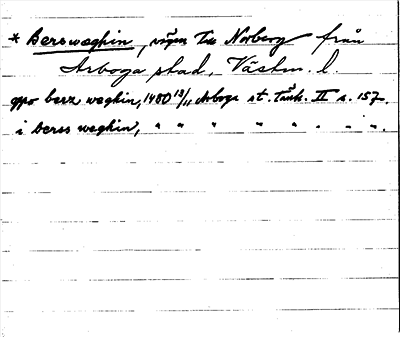 * Bersweghin, vägen till Norberg från
Arboga stad, Västm. l.
gpo berz weghin, 1480 13/11 Arboga st. tänk. II s. 157.
i berss weghin, " " " " " " ".